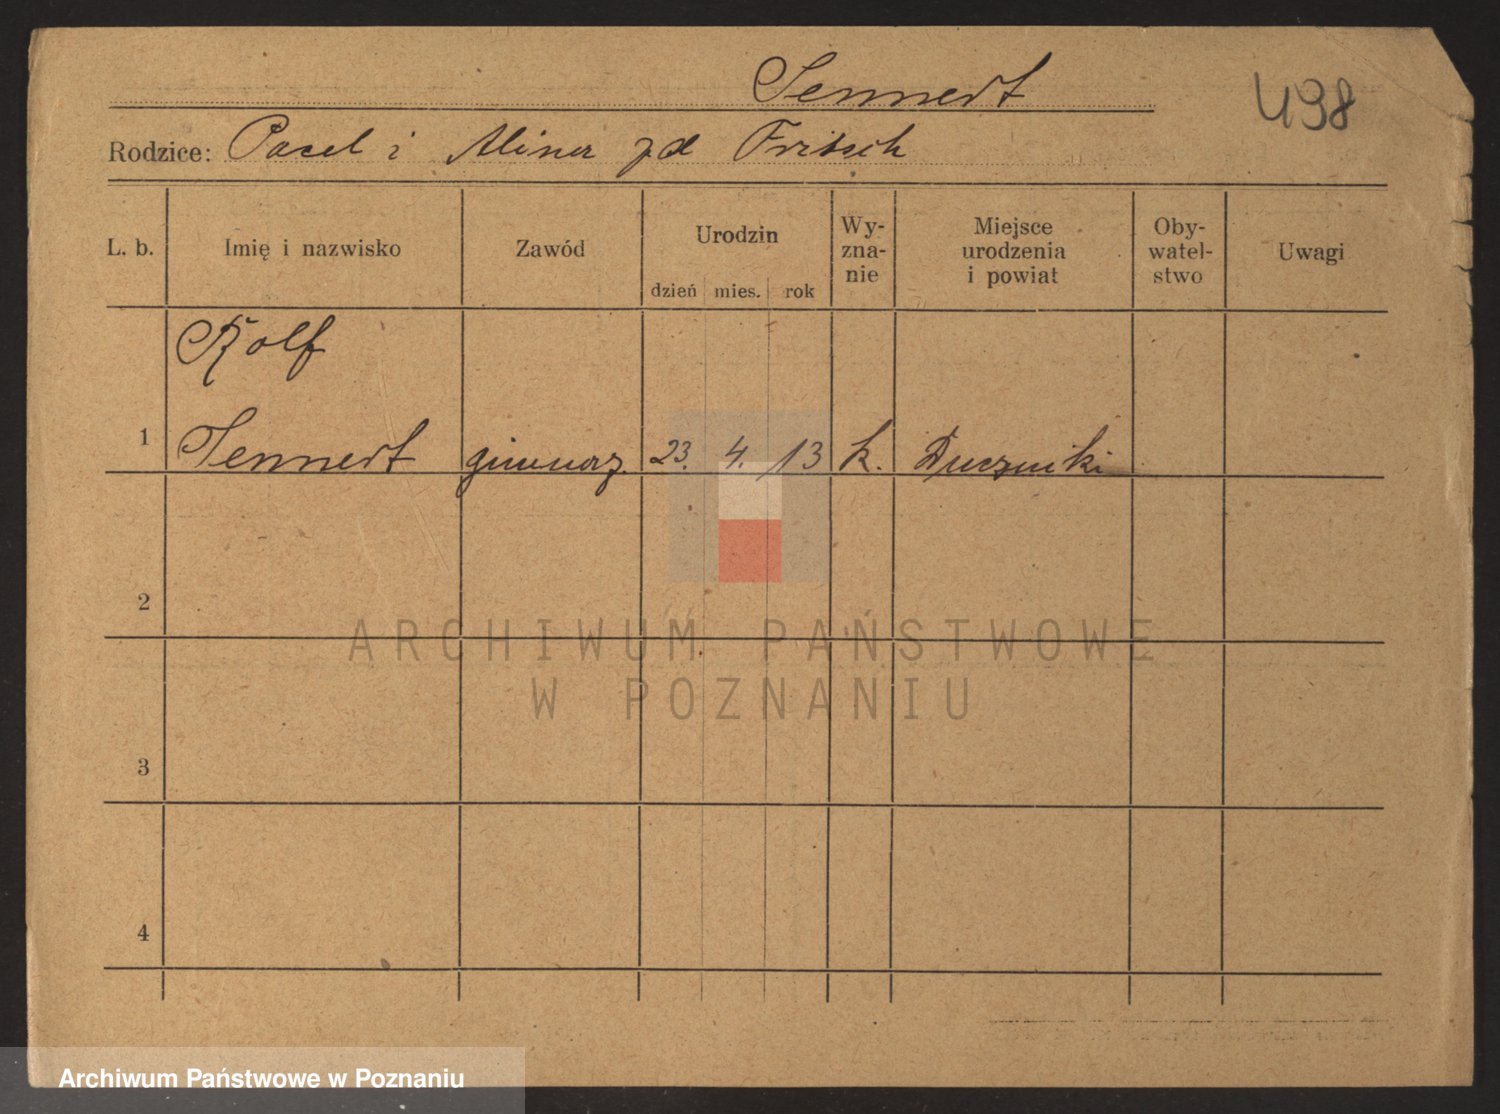 Sennert
498
Rodzice: Pacel i Alina zd Fritsch
L. b. Imię i nazwisko Zawód Urodzin dzień mies. rok Wy-zna-nie Miejsce urodzenia i powiat Oby-watel-stwo Uwagi
Rolf
1 Sennert gimnaz. 23. 4. 13 k.
2
ARCHIWUM PAŃSTWOWE
W POZNANIU
3
4
Archiwum Państwowe w Poznaniu